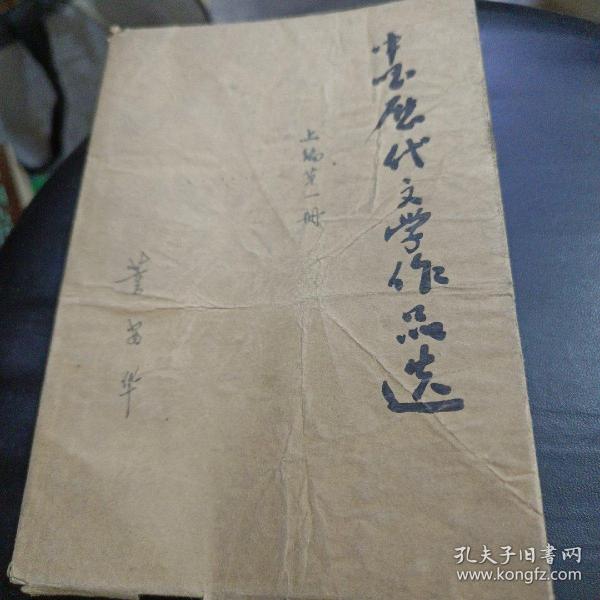 中国历代文学作品选
上编第一册
董
华
孔夫子旧书网
www.kongfz.com